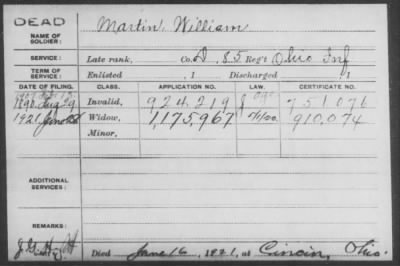 DEAD
NAME OF SOLDIER: Martin, William
SERVICE: Late rank, Co. D, 85 Reg't Ohio Inf
TERM OF SERVICE: Enlisted 1 Discharged 1
DATE OF FILING. CLASS. APPLICATION NO. LAW. CERTIFICATE NO.
1890, Aug 29 Invalid, 924,219 751,076
1921, Widow, 1,175,967 910,074
Minor,
ADDITIONAL SERVICES:
REMARKS:
Died June 16, 1921, at Cincin, Ohio.